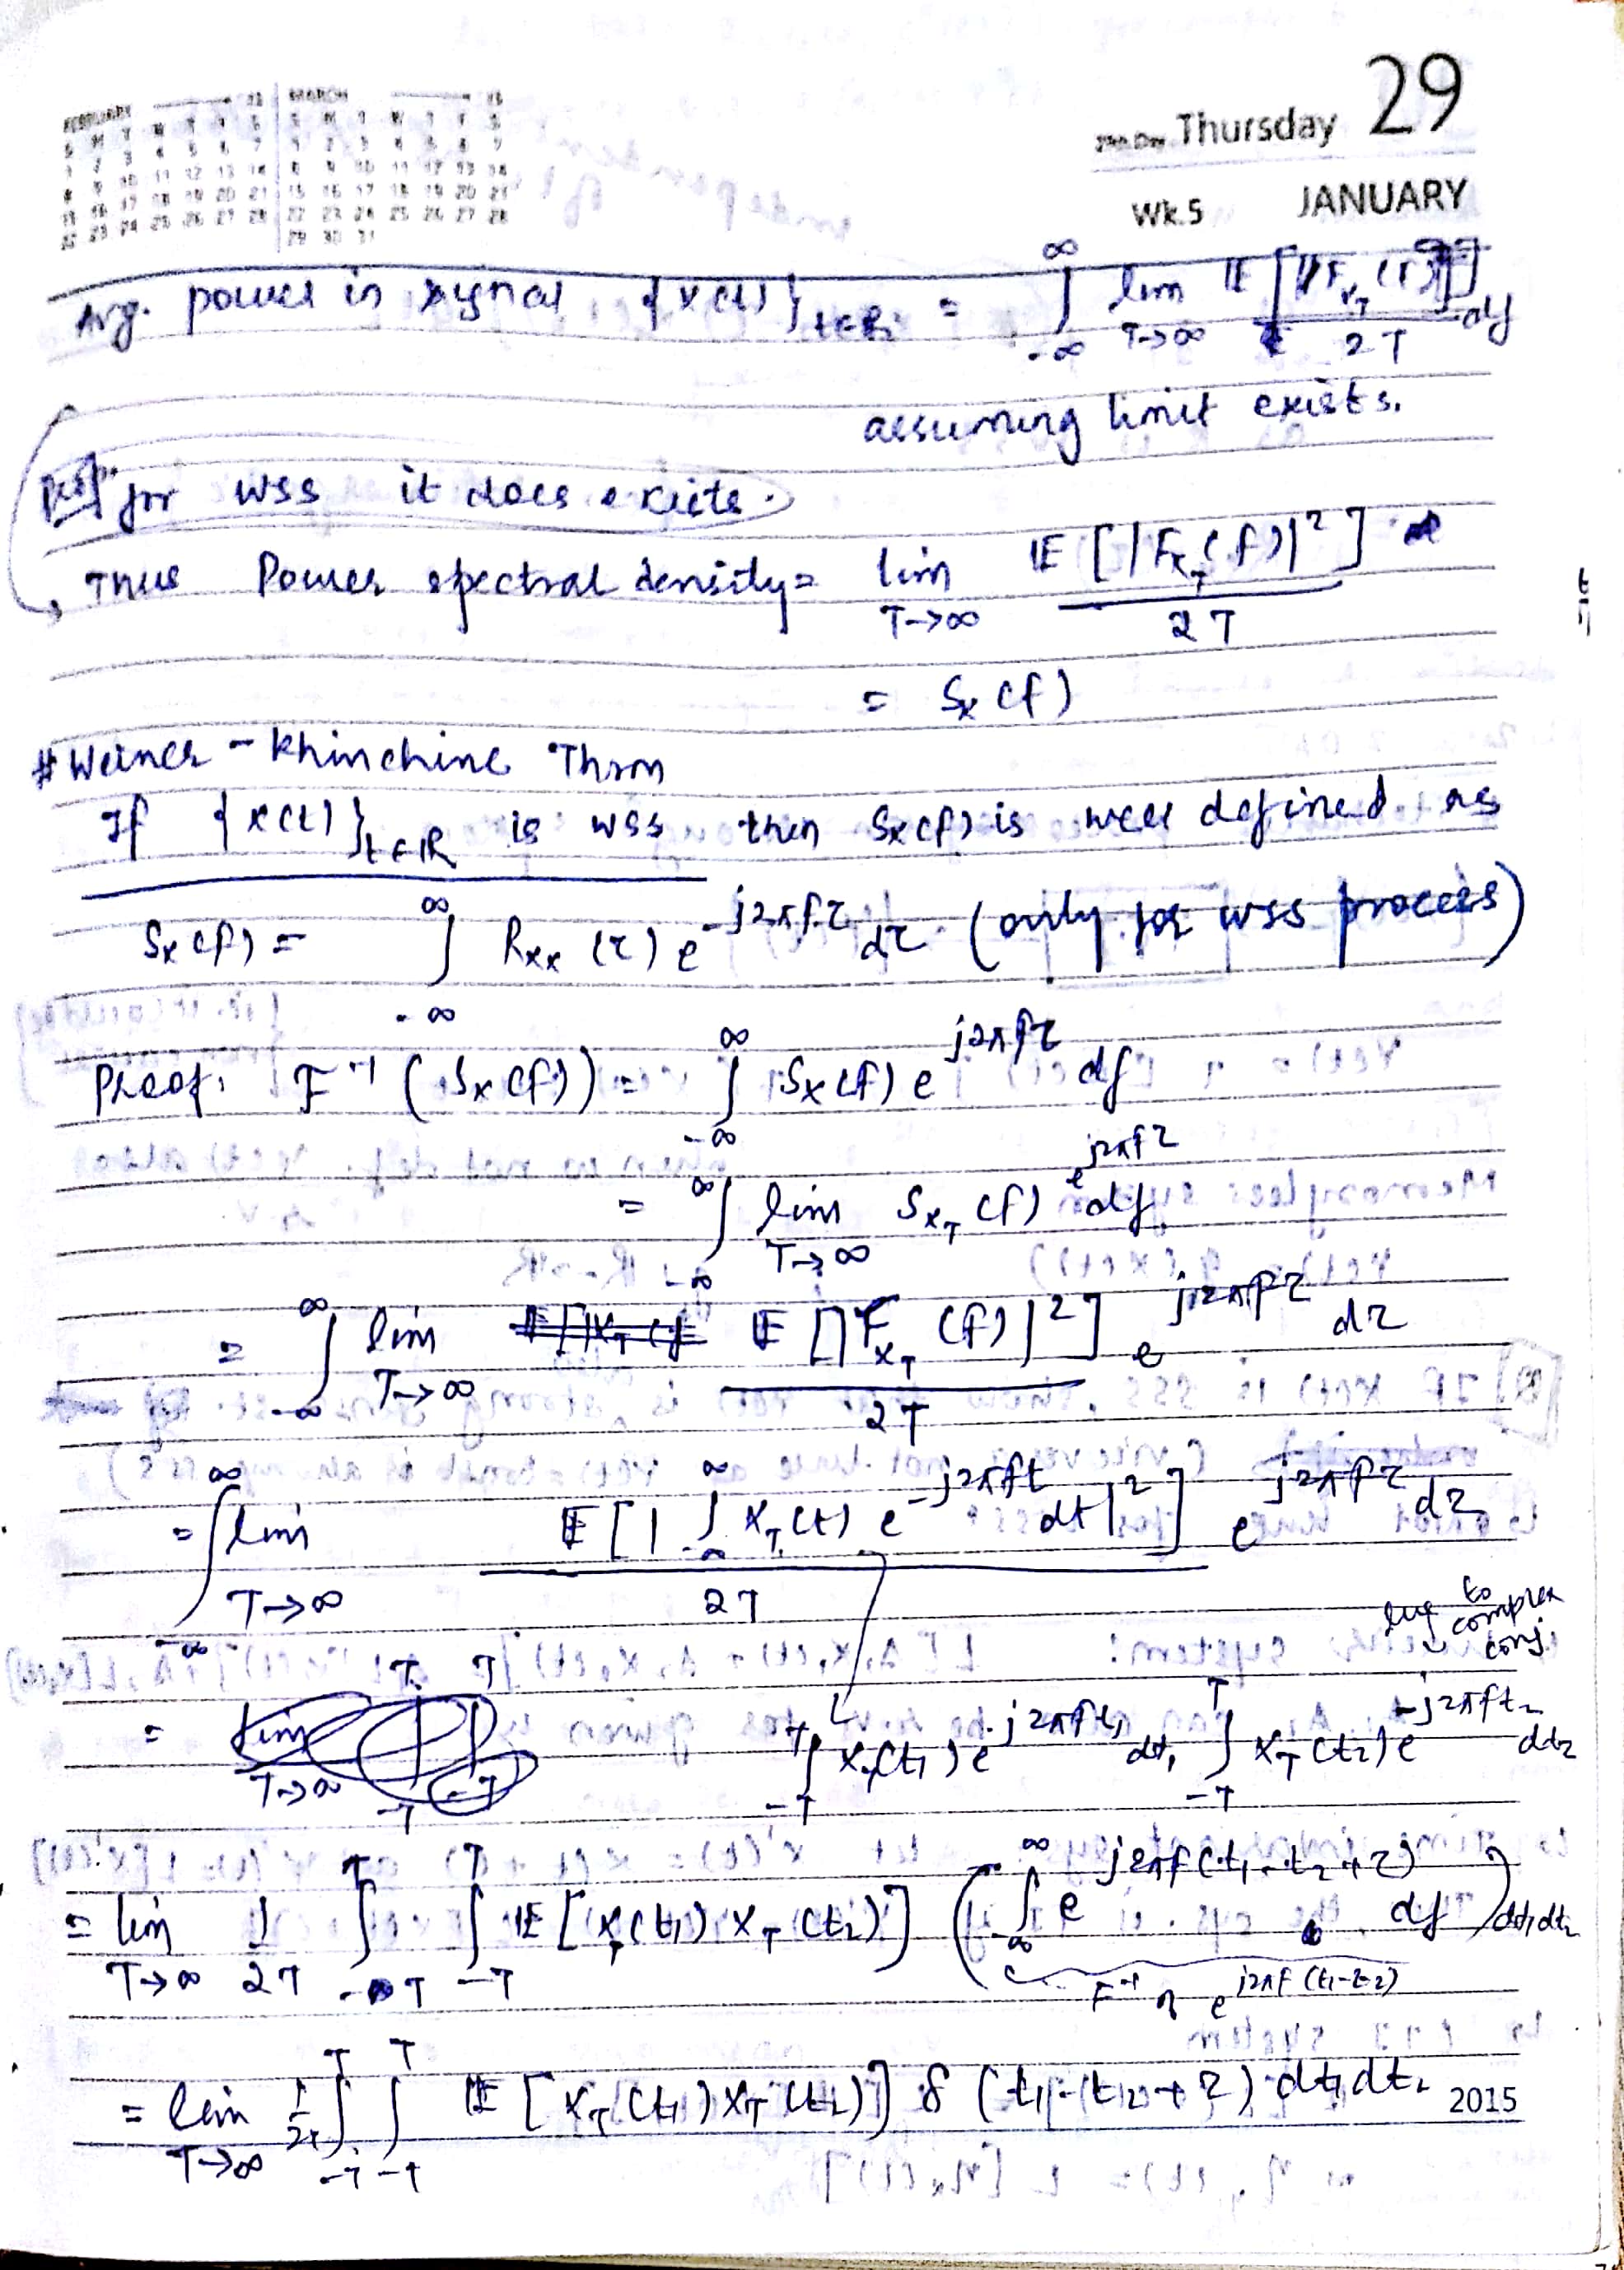 FEBRUARY 15 MARCH 15
29th Day Thursday 29
Wk.5 JANUARY
Avg. power in signal {x(t)}_{t∈R} = ∫_{-∞}^{∞} lim_{T→∞} E[|F_{X_T}(f)|²] / 2T df
assuming limit exists.
for WSS it does exists.
Thus Power spectral density = lim_{T→∞} E[|F_{X_T}(f)|²] / 2T
= S_X(f)
# Weiner - Khinchine Thrm
If {x(t)}_{t∈R} is WSS then S_X(f) is well defined as
S_X(f) = ∫_{-∞}^{∞} R_{XX}(τ) e^{-j2πfτ} dτ (only for WSS process)
Proof: F^{-1}(S_X(f)) = ∫_{-∞}^{∞} S_X(f) e^{j2πfτ} df
= ∫_{-∞}^{∞} lim_{T→∞} S_{X_T}(f) e^{j2πfτ} df
= ∫_{-∞}^{∞} lim_{T→∞} E[|F_{X_T}(f)|²] / 2T e^{j2πfτ} dτ
= ∫_{-∞}^{∞} lim_{T→∞} E[|∫_{-∞}^{∞} X_T(t) e^{-j2πft} dt|²] / 2T e^{j2πfτ} dτ
to complex conj.
= ∫_{-T}^{T} X_T(t₁) e^{j2πft₁} dt₁ ∫_{-T}^{T} X_T(t₂) e^{-j2πft₂} dt₂
= lim_{T→∞} 1/2T ∫_{-T}^{T} ∫_{-T}^{T} E[X_T(t₁) X_T(t₂)] (∫_{-∞}^{∞} e^{j2πf(t₁-t₂+τ)} df) dt₁dt₂
F^{-1} of e^{j2πf(t₁-t₂)}
= lim_{T→∞} 1/2T ∫_{-T}^{T} ∫_{-T}^{T} E[X_T(t₁) X_T(t₂)] δ(t₁-t₂+τ) dt₁dt₂
2015